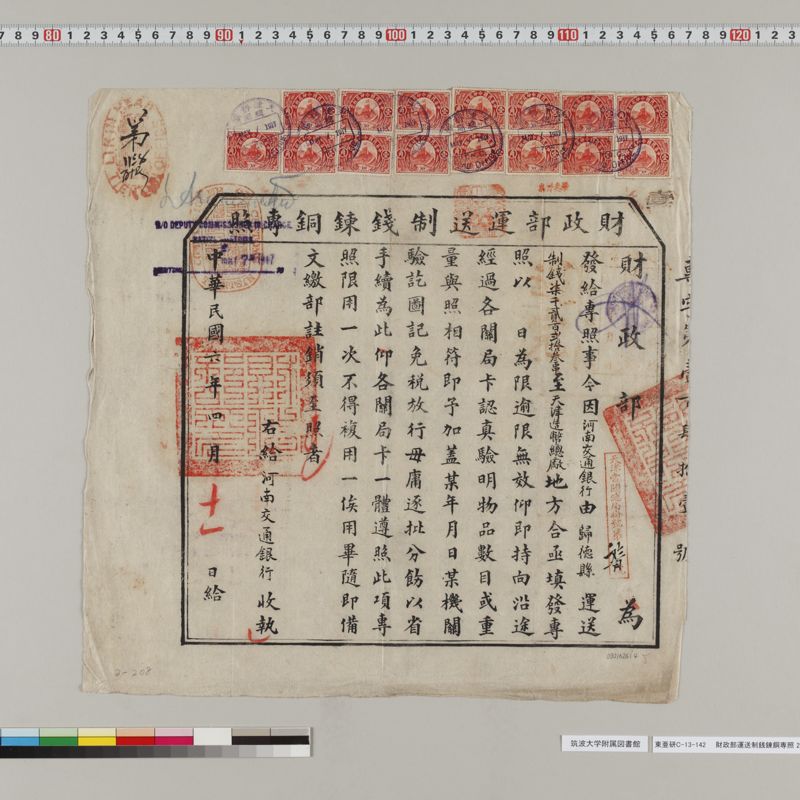 財政部運送制錢鍊銅專照
財政部 為
發給專照事今因河南交通銀行由歸德縣 運送
制錢柒千貳百弍拾叁串至天津造幣總廠地方合亟填發專
照以 日為限逾限無效仰即持向沿途
經過各關局卡認真驗明物品數目或重
量與照相符即予加蓋某年月日某機關
驗訖圖記免稅放行毋庸逐批分飭以省
手續為此仰各關局卡一體遵照此項專
照限用一次不得複用一俟用畢隨即備
文繳部註銷須至照者
右給河南交通銀行 收執
中華民國六年四月十一日給
號
第 號
2-208
筑波大学附属図書館
東亜研C-13-142 財政部運送制銭錬銅専照 2
7 8 9 80 1 2 3 4 5 6 7 8 9 90 1 2 3 4 5 6 7 8 9 100 1 2 3 4 5 6 7 8 9 110 1 2 3 4 5 6 7 8 9 120 1 2